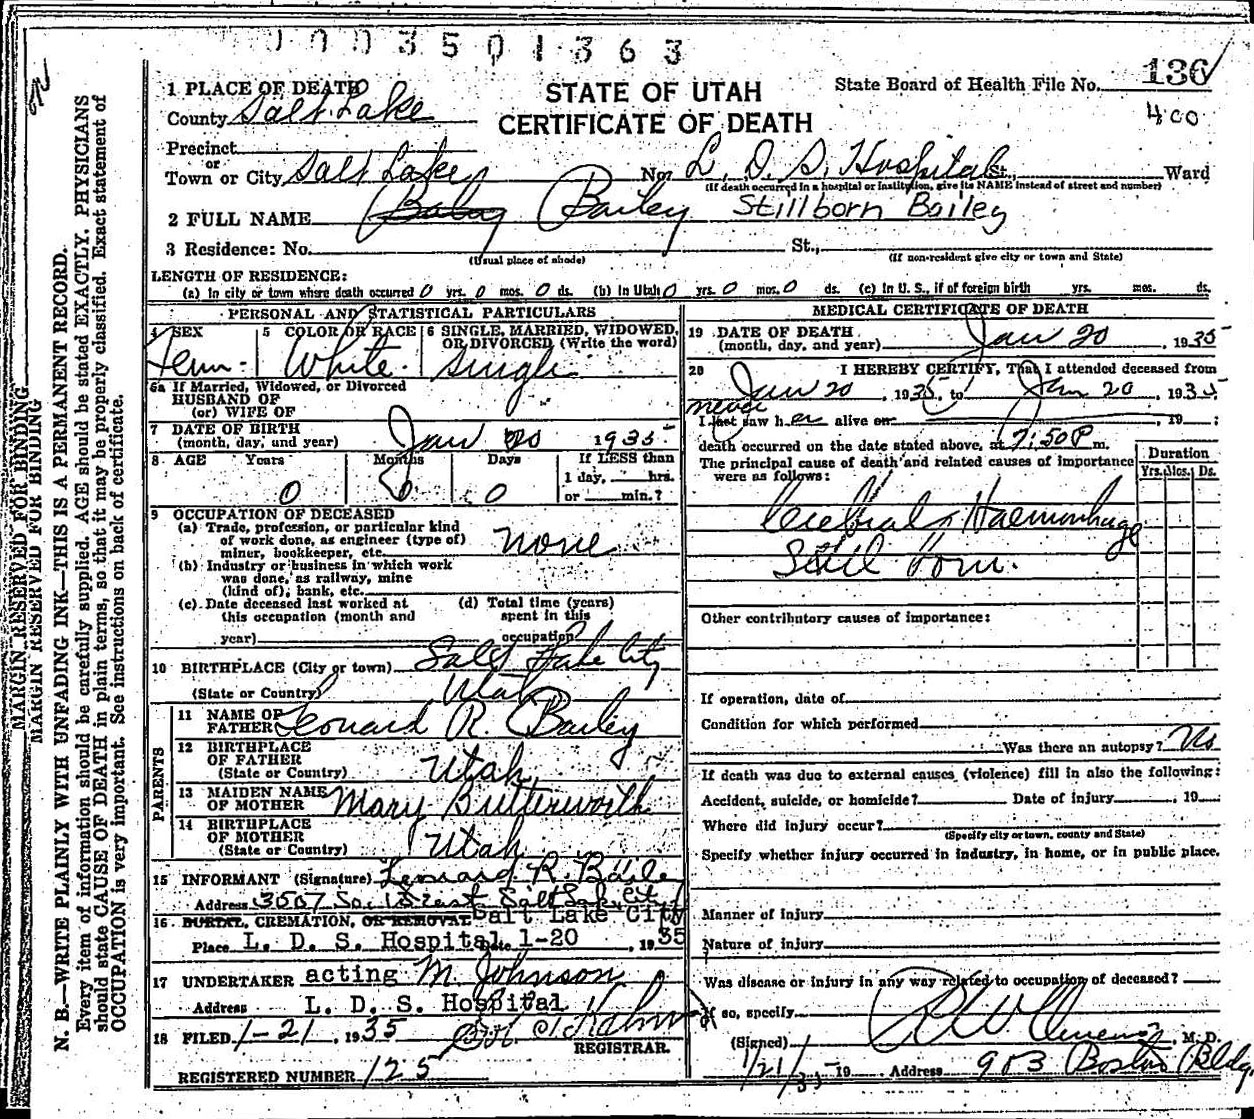 0003501363
1 PLACE OF DEATH
County Salt Lake
STATE OF UTAH
CERTIFICATE OF DEATH
State Board of Health File No. 136
400
Precinct
or
Town or City Salt Lake No. L. D. S. Hospital St., Ward
(If death occurred in a hospital or institution, give its NAME instead of street and number)
2 FULL NAME Baby Bailey Stillborn Bailey
3 Residence: No. St.,
(Usual place of abode) (If non-resident give city or town and State)
LENGTH OF RESIDENCE:
(a) In city or town where death occurred 0 yrs. 0 mos. 0 ds. (b) In Utah 0 yrs. 0 mos. 0 ds. (c) In U. S., if of foreign birth yrs. mos. ds.
PERSONAL AND STATISTICAL PARTICULARS
4 SEX Fem.
5 COLOR OR RACE White.
6 SINGLE, MARRIED, WIDOWED, OR DIVORCED (Write the word) Single
6a If Married, Widowed, or Divorced
HUSBAND OF
(or) WIFE OF
7 DATE OF BIRTH
(month, day, and year) Jan 20 1935
8 AGE Years Months Days If LESS than
0 0 0 1 day, hrs.
or min.?
9 OCCUPATION OF DECEASED
(a) Trade, profession, or particular kind
of work done, as engineer (type of)
miner, bookkeeper, etc. none
(b) Industry or business in which work
was done, as railway, mine
(kind of), bank, etc.
(c) Date deceased last worked at
this occupation (month and
year)
(d) Total time (years)
spent in this
occupation
10 BIRTHPLACE (City or town) Salt Lake City
(State or Country) Utah
PARENTS
11 NAME OF
FATHER Leonard R. Bailey
12 BIRTHPLACE
OF FATHER
(State or Country) Utah
13 MAIDEN NAME
OF MOTHER Mary Butterworth
14 BIRTHPLACE
OF MOTHER
(State or Country) Utah
15 INFORMANT (Signature) Leonard R. Baile
Address 3507 So. East Salt Lake City
16 BURIAL, CREMATION, OR REMOVAL Salt Lake City
Place L. D. S. Hospital Date 1-20, 1935
17 UNDERTAKER acting M. Johnson
Address L. D. S. Hospital
18 FILED 1-21, 1935
REGISTRAR.
REGISTERED NUMBER 125
MEDICAL CERTIFICATE OF DEATH
19 DATE OF DEATH
(month, day, and year) Jan 20, 1935
20 I HEREBY CERTIFY, That I attended deceased from
Jan 20, 1935, to Jan 20, 1935
never
I last saw her alive on , 19 ;
death occurred on the date stated above, at 7:50 P m.
The principal cause of death and related causes of importance
were as follows:
Duration
Yrs. Mos. Ds.
Cerebral Haemorrhage
Still born.
Other contributory causes of importance:
If operation, date of
Condition for which performed
Was there an autopsy? No
If death was due to external causes (violence) fill in also the following:
Accident, suicide, or homicide? Date of injury , 19
Where did injury occur?
(Specify city or town, county and State)
Specify whether injury occurred in industry, in home, or in public place.
Manner of injury
Nature of injury
Was disease or injury in any way related to occupation of deceased?
If so, specify
(Signed) , M. D.
1/21/35 19 Address 903 Boston Bldg.
MARGIN RESERVED FOR BINDING
MARGIN RESERVED FOR BINDING
N. B.—WRITE PLAINLY WITH UNFADING INK—THIS IS A PERMANENT RECORD.
Every item of information should be carefully supplied. AGE should be stated EXACTLY. PHYSICIANS
should state CAUSE OF DEATH in plain terms, so that it may be properly classified. Exact statement of
OCCUPATION is very important. See instructions on back of certificate.